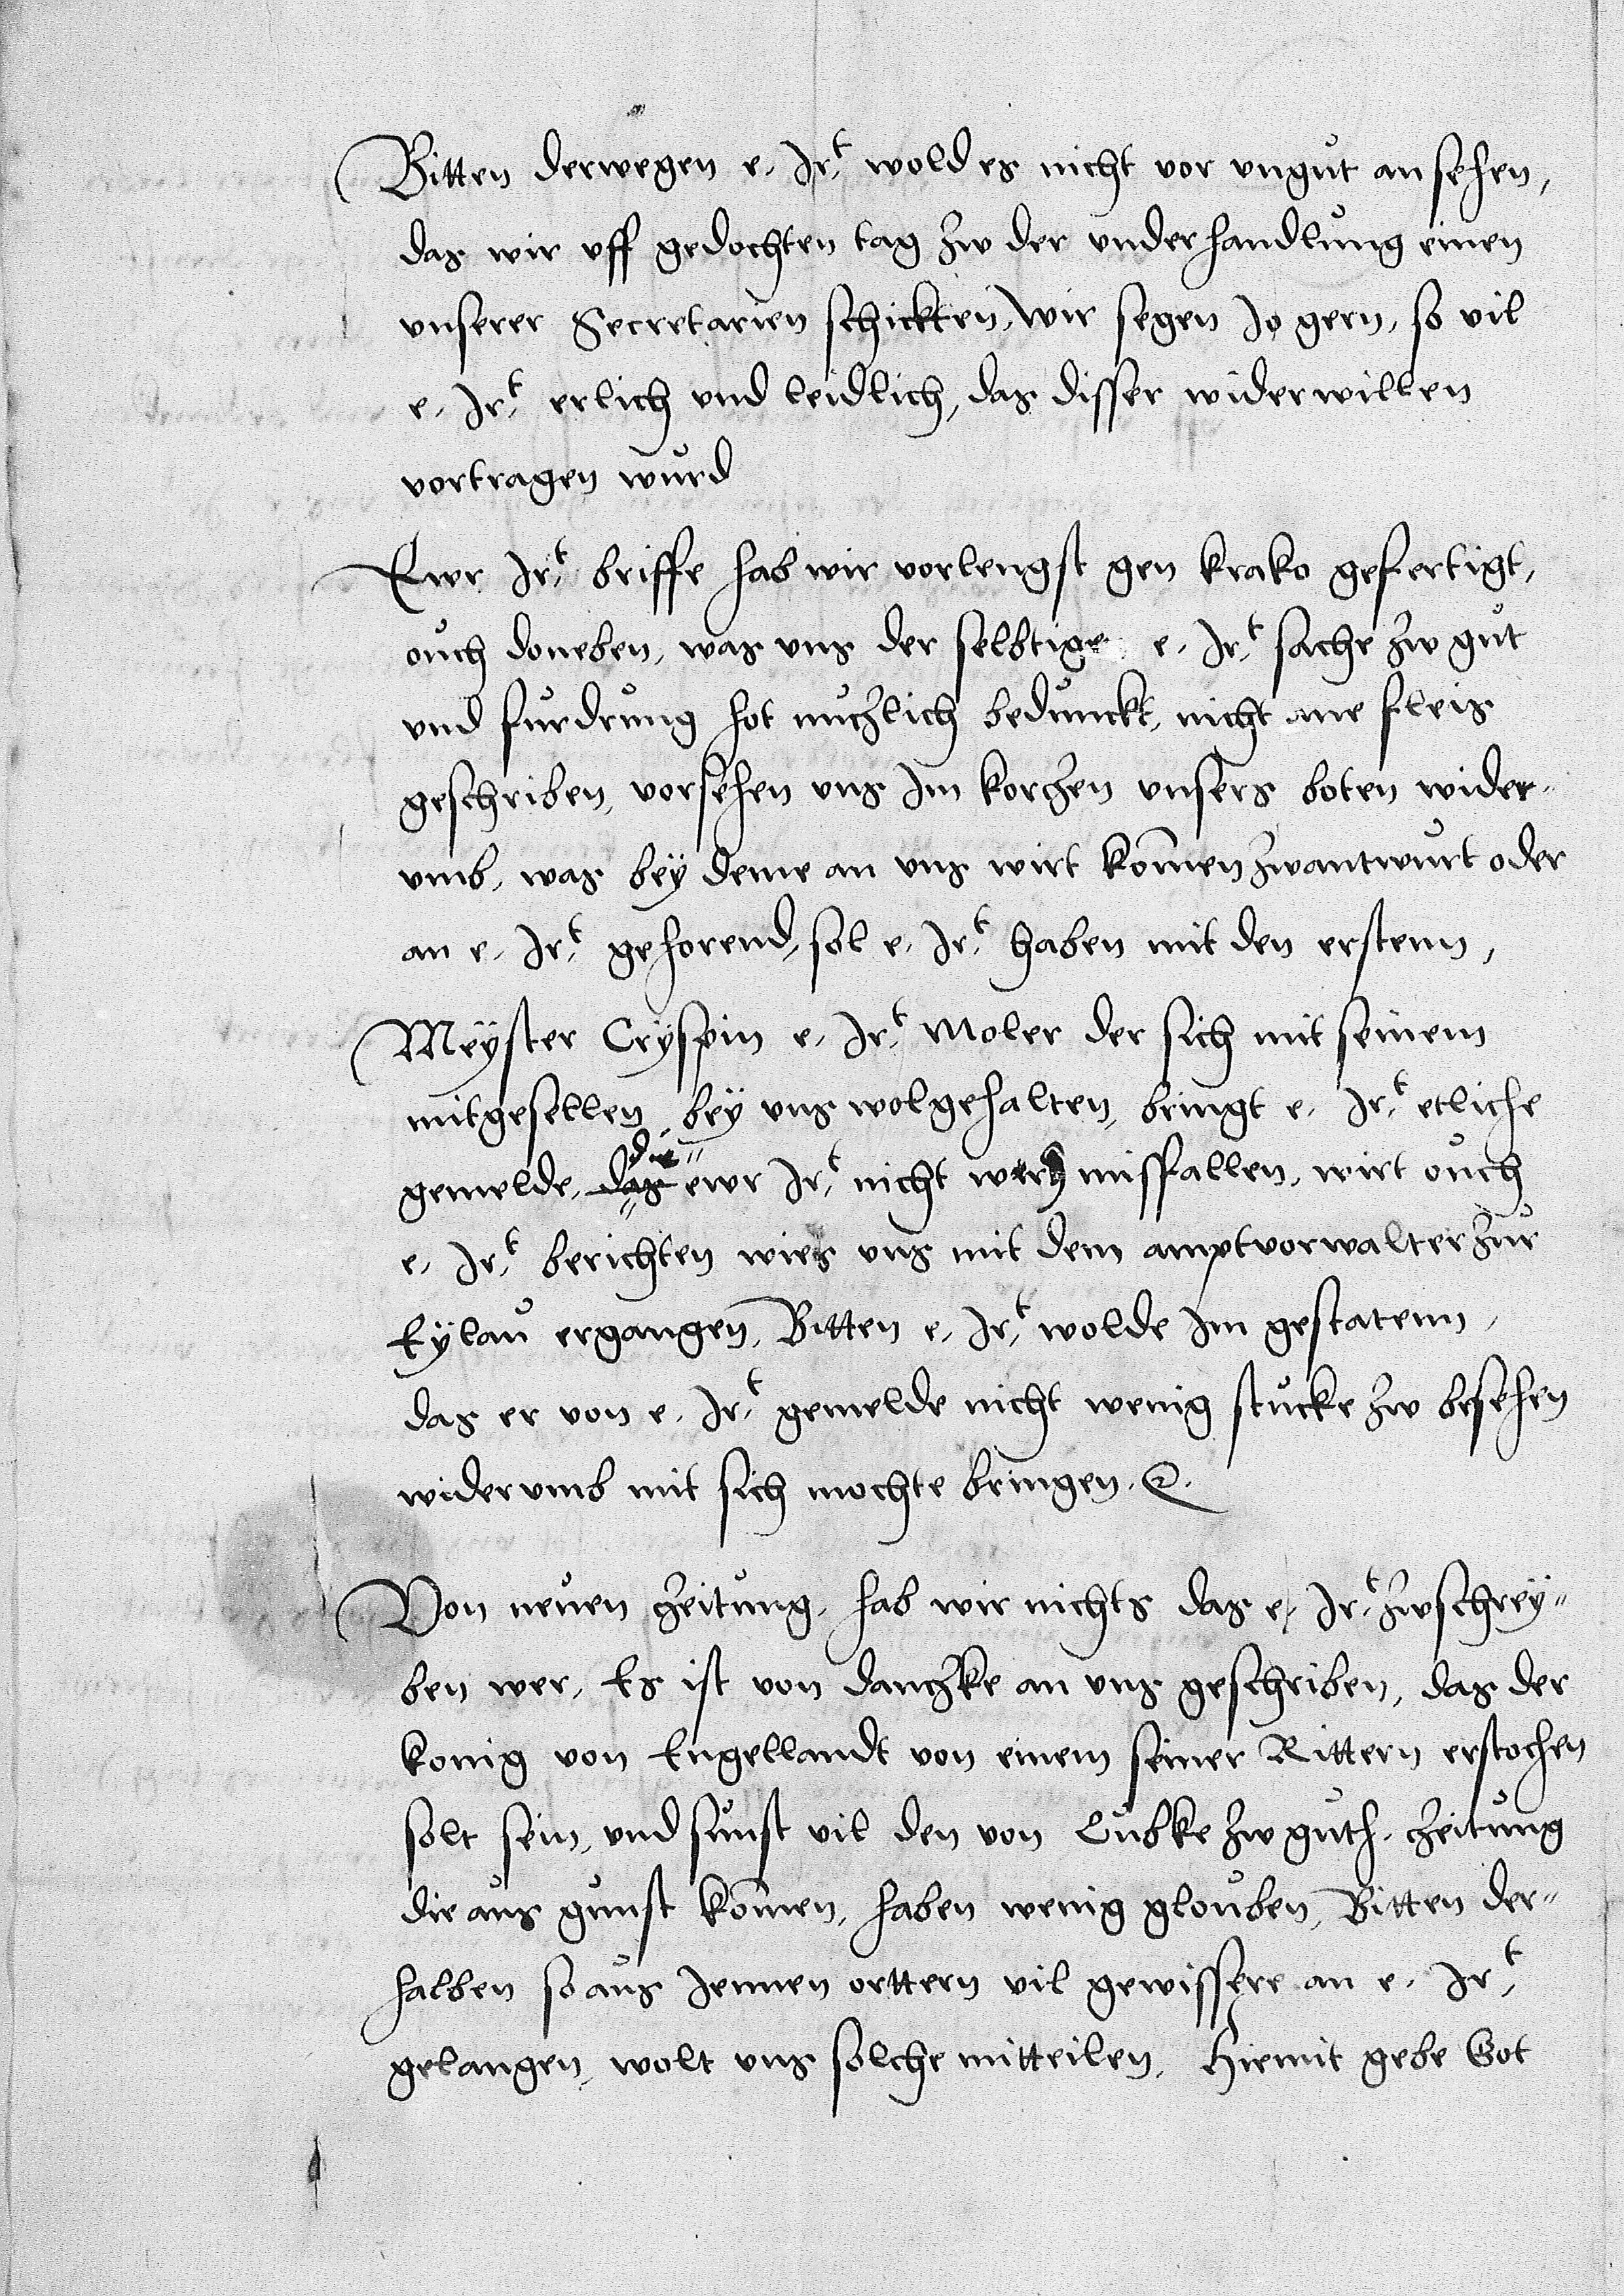 Bitten derwegen e. Jr.t wold es nicht vor ungut an sehen,
das wir uff gedochten tag zw der underhandlung einen
unserer Secretarien schickten, wir segen Jo gern, so vil
e. Jr.t erlich und leidlich, das disser widerwillen
vortragen wurd
Ewr Jr.t briffe hab wir vorlengst gen krako gefertigt,
ouch doneben, was uns der selbtige e. Jr.t sache zw gut
und furdrung hot nuczlich bedunckt, nicht ane fleis
geschriben, vorsehen uns Jm korczen unsers boten wider-
umb, was bey deme an uns wirt komen zwantwurt oder
an e. Jr.t gehorend, sol e. Jr.t haben mit den erstenn,
Meyster Cryspin e. Jr.t Moler der sich mit seinem
mitgesellen bey uns wolgehalten, bringt e. Jr.t etliche
gemelde, das die ewr Jr.t nicht wern missfallen, wirt ouch
e. Jr.t berichten wies uns mit dem amptvorwalter zur
Eylau ergangen, Bitten e. Jr.t wolde Jm gestatenn,
das er von e. Jr.t gemelde nicht wenig stucke zw besehen
widerumb mit sich mochte bringen. etc.
Von neuen czeitung, hab wir nichts das e. Jr.t zwschrey-
ben wer, Es ist von danczke an uns geschriben, das der
konig von Engellandt von einem seiner Rittern erstochen
solt sein, und sunst vil den von Lubke zw guth. czeitung
die aus gunst komen, haben wenig glouben, Bitten der-
halben so aus Jennen orttern vil gewissere an e. Jr.t
gelangen, wolt uns solche mitteilen, Hiemit gebe Got